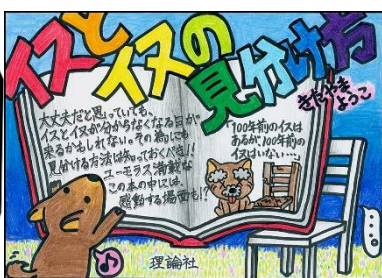 イスとイヌの見分け方
きたやまようこ
大丈夫だと思っていても、
イスとイヌが分からなくなる日が
来るかもしれない。その為にも
見分ける方法は知っておくべき!!
ユーモラス満載な
この本の中には、
感動する場面も!?
「100年前のイスは
あるが、100年前の
イヌはいない…」
理論社